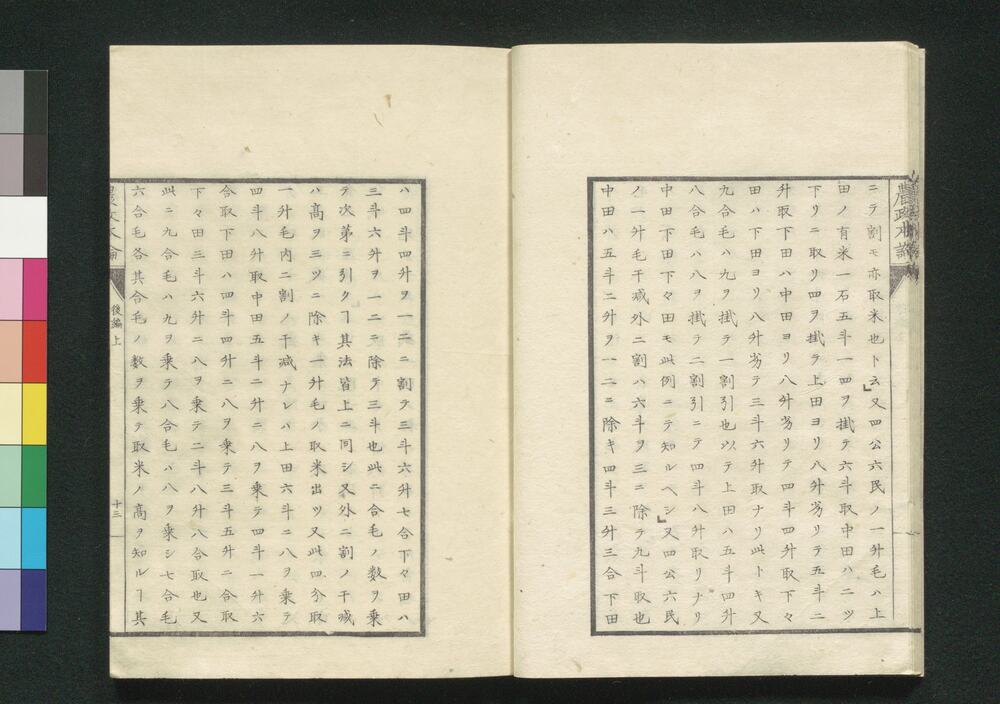 ニテ割モ亦取米也ト云』又四公六民ノ一升毛ハ上
田ノ有米一石五斗一四ヲ掛テ六斗取中田ハ二ツ
下リニ取リ四ヲ掛テ上田ヨリ八升劣リテ五斗二
升取下田ハ中田ヨリ八升劣リテ四斗四升取下々
田ハ下田ヨリ八升劣テ三斗六升取ナリ此トキ又
九合毛ハ九ヲ掛テ一割引也以テ上田ハ五斗四升
八合毛ハ八ヲ掛テ二割引ニテ四斗八升取リナリ
中田下田下々田モ此例ニテ知ルヘシ』又四公六民
ノ一升毛干减外二割ハ六斗ヲ三ニ除テ九斗取也
中田ハ五斗二升ヲ一二ニ除キ四斗三升三合下田
ハ四斗四升ヲ一二ニ割テ三斗六升七合下々田ハ
三斗六升ヲ一二ニ除テ三斗也此ニ合毛ノ数ヲ乗
テ次第ニ引クヿ其法皆上ニ同シ又外二割ノ干减
ハ高ヲ三ツニ除キ一升毛ノ取米出ツ又此四分取
一升毛内二割ノ干减ナレハ上田六斗ニ八ヲ乗テ
四斗八升取中田五斗二升ニ八ヲ乗テ四斗一升六
合取下田ハ四斗四升ニ八ヲ乗テ三斗五升二合取
下々田三斗六升ニ八ヲ乗テ二斗八升八合取也又
此ニ九合毛ハ九ヲ乗テ八合毛ハ八ヲ乗シ七合毛
六合毛各其合毛ノ数ヲ乗テ取米ノ高ヲ知ルヿ其
後編上
十三